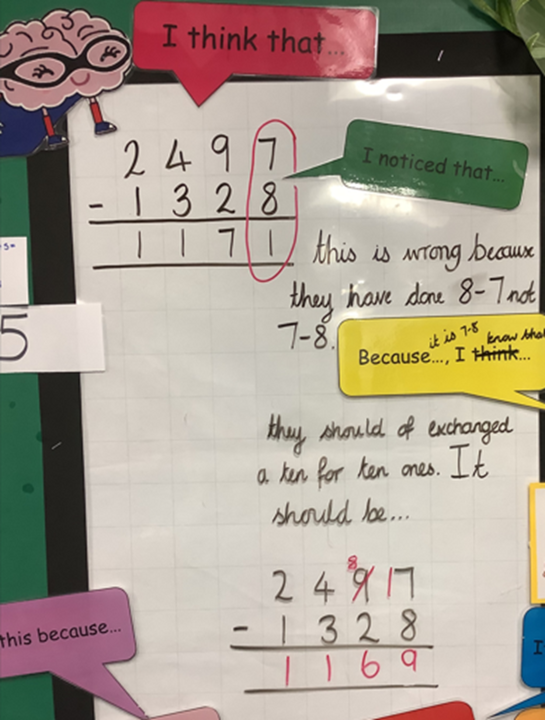 I think that...
2 4 9 7
I noticed that...
- 1 3 2 8
1 1 7 1
this is wrong because
they have done 8-7 not
7-8.
it is 7-8 know that
Because..., I think...
5
they should of exchanged
a ten for ten ones. It
should be...
8
2 4 9 17
- 1 3 2 8
1 1 6 9
this because...
I